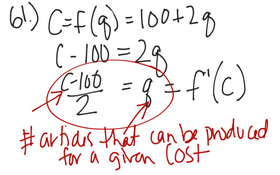 61.) C=f(q)=100+2q
C-100=2q
C-100/2 = q = f⁻¹(C)
# articles that can be produced
for a given cost